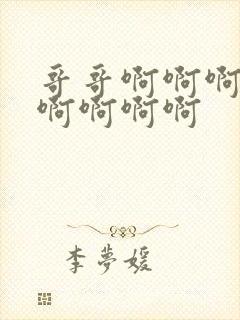 哥哥啊啊啊
啊啊啊啊
李夢媛